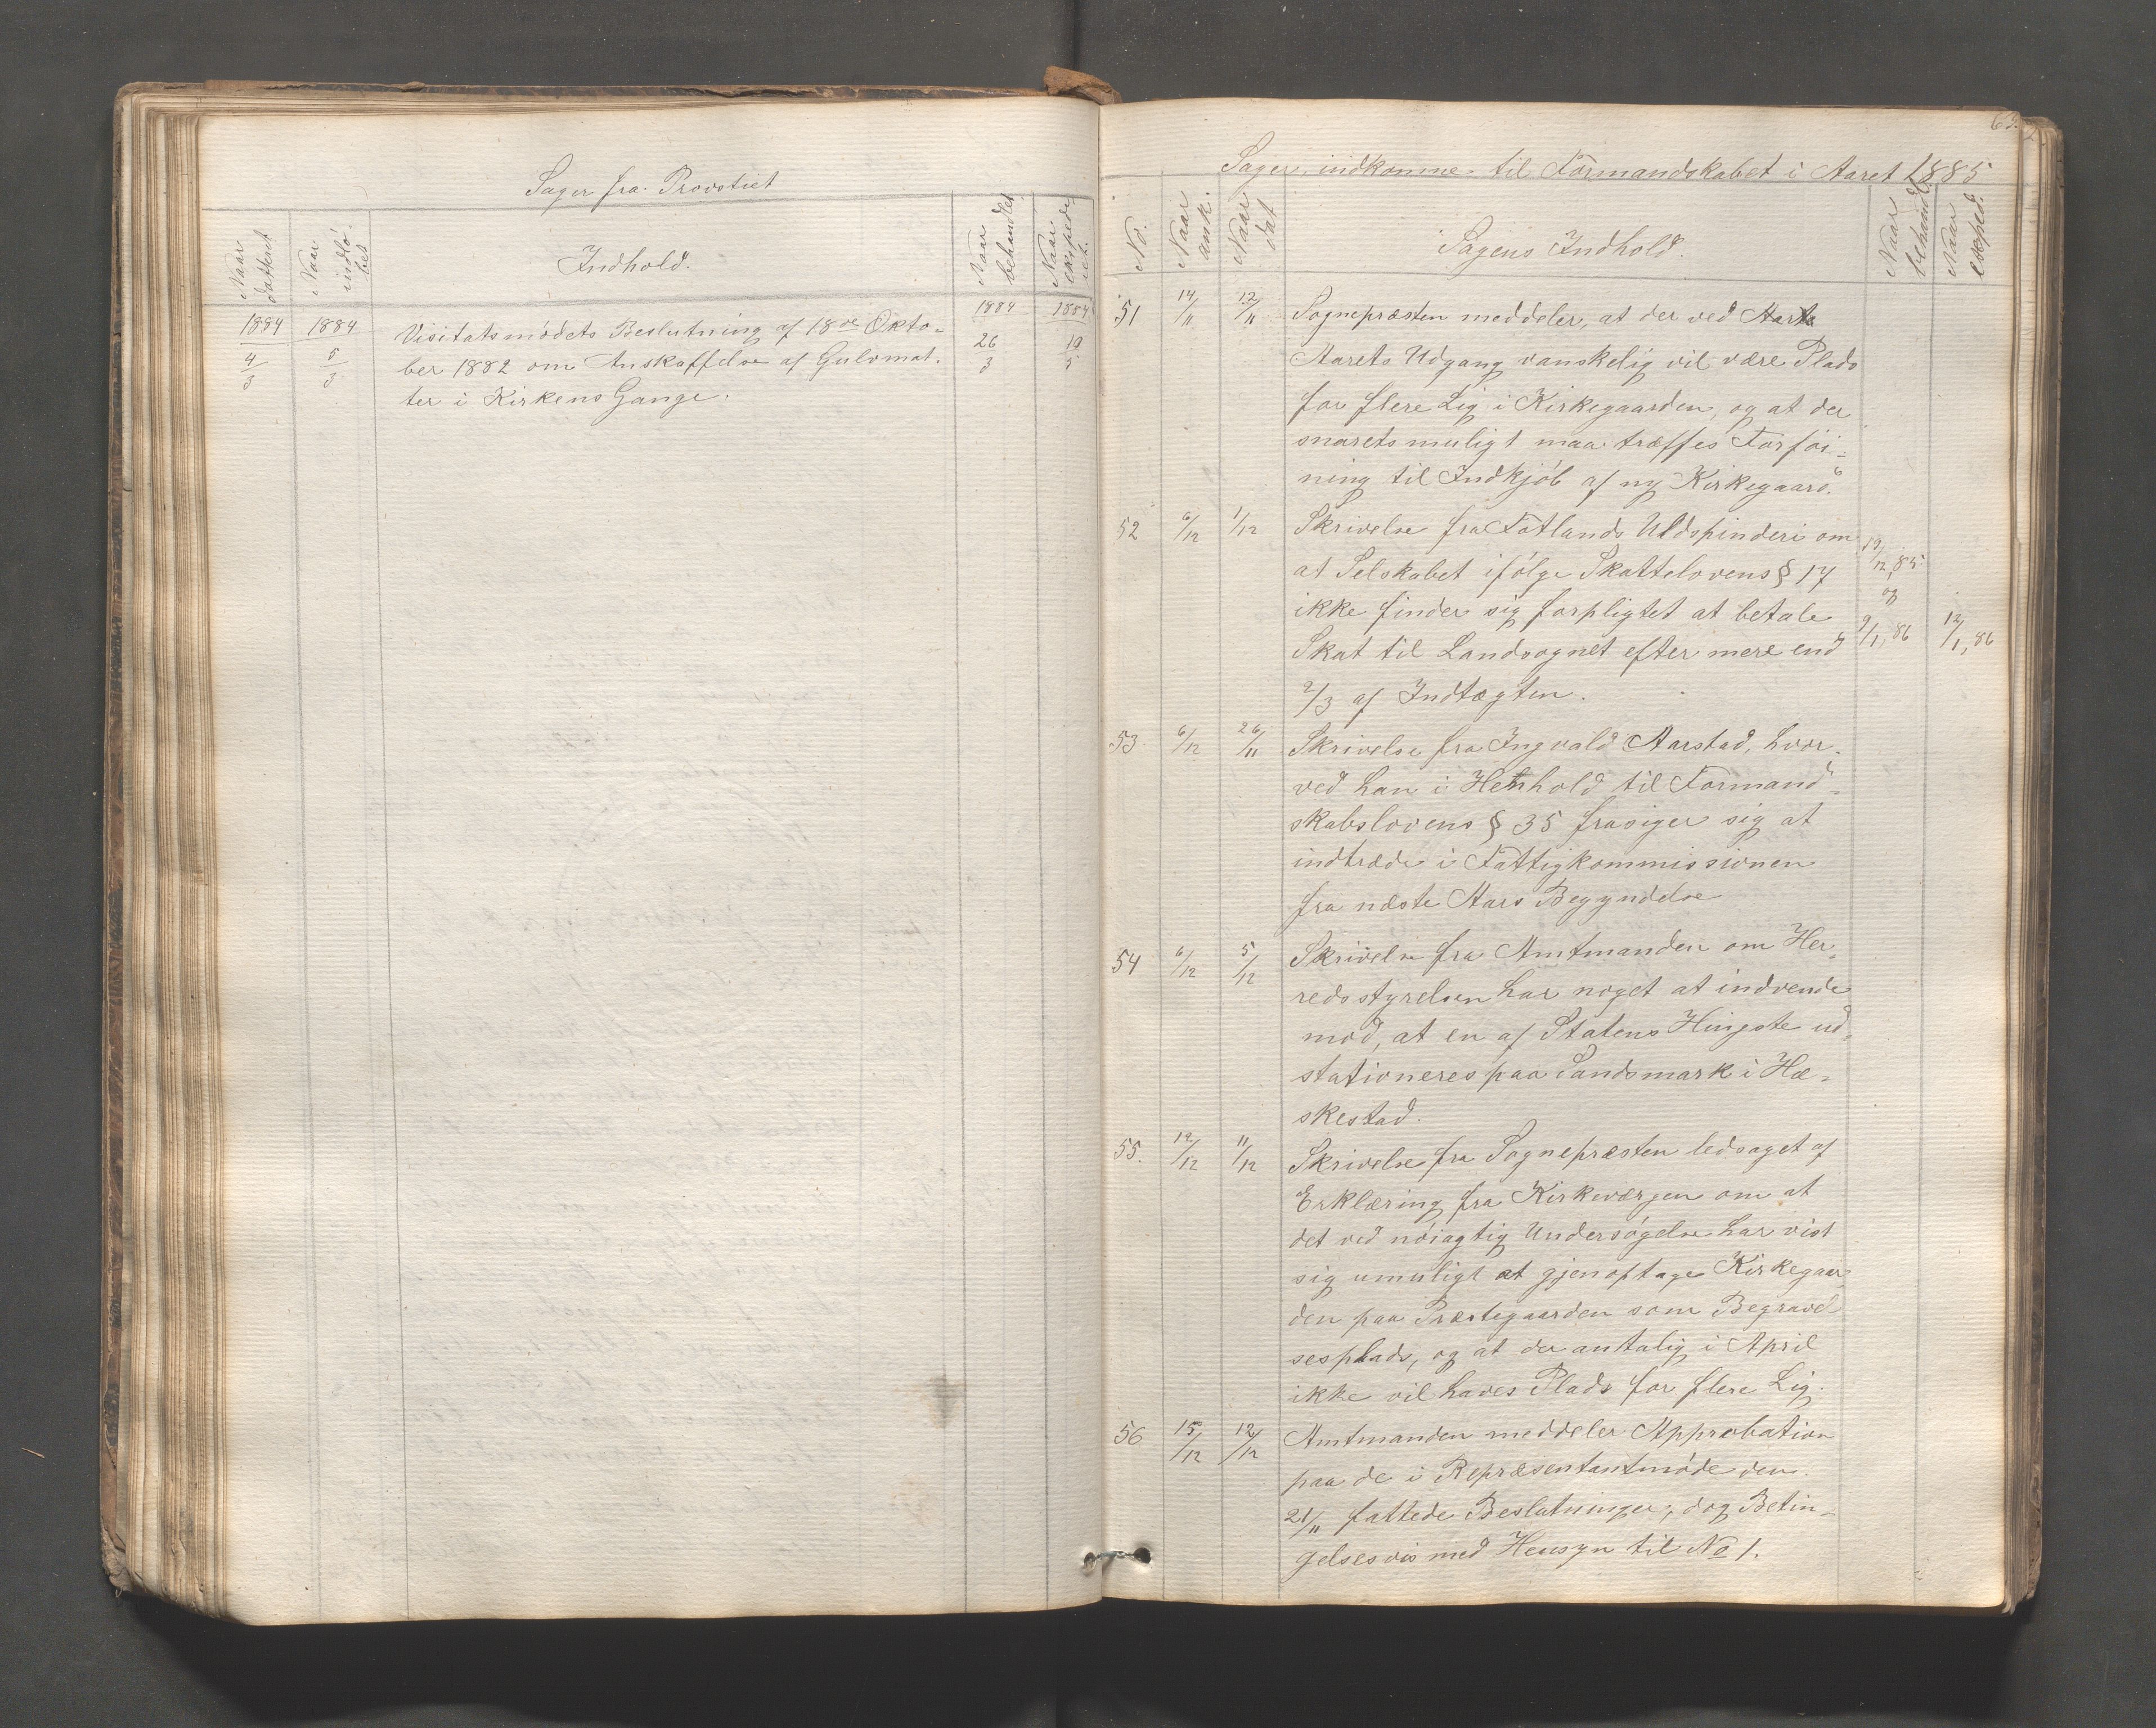 Sager fra Provstiet
Naar dateret
Naar indlø-bet
Indhold.
Naar behandlet
Naar ekspede ret.
1884 1884 1884 1884
4/3 5/3 Visitatsmødets Beslutning af 18de Okto- 26/3 19/5
ber 1882 om Anskaffelse af Gulvmat-
ter i Kirkens Gange.
63.
Sager, indkomne til Formandskabet i Aaret 1885
No. Naar ank. Naar dat Sagens Indhold. Naar behandl. Naar exsped.
51 14/11 12/11 Sognepræsten meddeler, at der ved
Aarets Udgang vanskelig vil være Plads
for flere Lig i Kirkegaarden, og at der
snarets muligt maa træffes Forføi-
ning til Indkjøb af ny Kirkegaard.
52 6/12 1/12 Skrivelse fra Fotlands Uldspinderi om
at Selskabet ifølge Skattelovens § 17 19/12, 85
ikke finder sig forpligtet at betale og
Skat til Landsognet efter mere end 9/1, 86 12/1, 86
2/3 af Indtægten.
53 6/12 26/11 Skrivelse fra Ingvald Aarstad, hvor-
ved han i Henhold til Formand-
skabslovens § 35 frasiger sig at
indtræde i Fattigkommissionen
fra næste Aars Begyndelse
54 6/12 5/12 Skrivelse fra Amtmanden om Her-
redsstyrelsen har noget at indvende
mod, at en af Statens Hingste ud-
stationeres paa Sandsmark i Hæ-
skestad.
55. 12/12 11/12 Skrivelse fra Sognepræsten ledsaget af
Erklæring fra Kirkeværgen om at
det ved nøiagtig Undersøgelse har vist
sig umuligt at gjenoptage Kirkegaar
den paa Præstegaarden som Begravel
sesplads, og at der antalig i April
ikke vil haves Plads for flere Lig.
56 15/12 12/12 Amtmanden meddeler Approbation
paa de i Repræsentantmøde den
21/11 fattede Beslutninger, dog Betin-
gelsesvis med Hensyn til No 1.